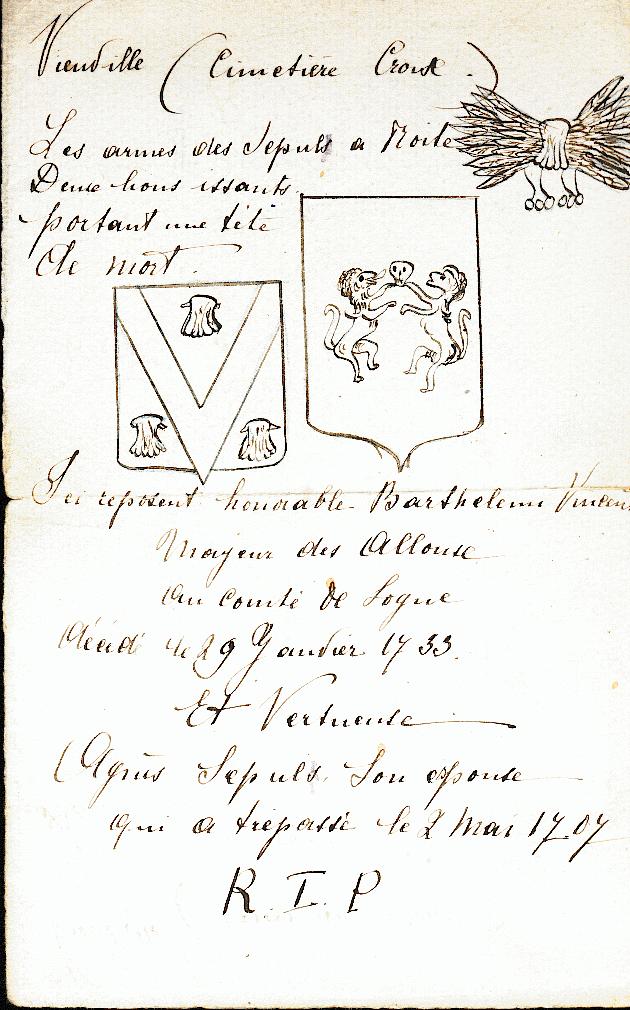 Vienville (Cimetière Croix.)
Les armes des Sepuls a
Deux lions issants
portant une tête
de mort.
Ici reposent honorable Barthelemi Vincen
Mayeur des Allouse
au comté de Logne
décédé le 29 Janvier 1733.
Et Vertueuse
Agnès Sepuls Son épouse
qui a trépassé le 2 Mai 1707
R. I. P